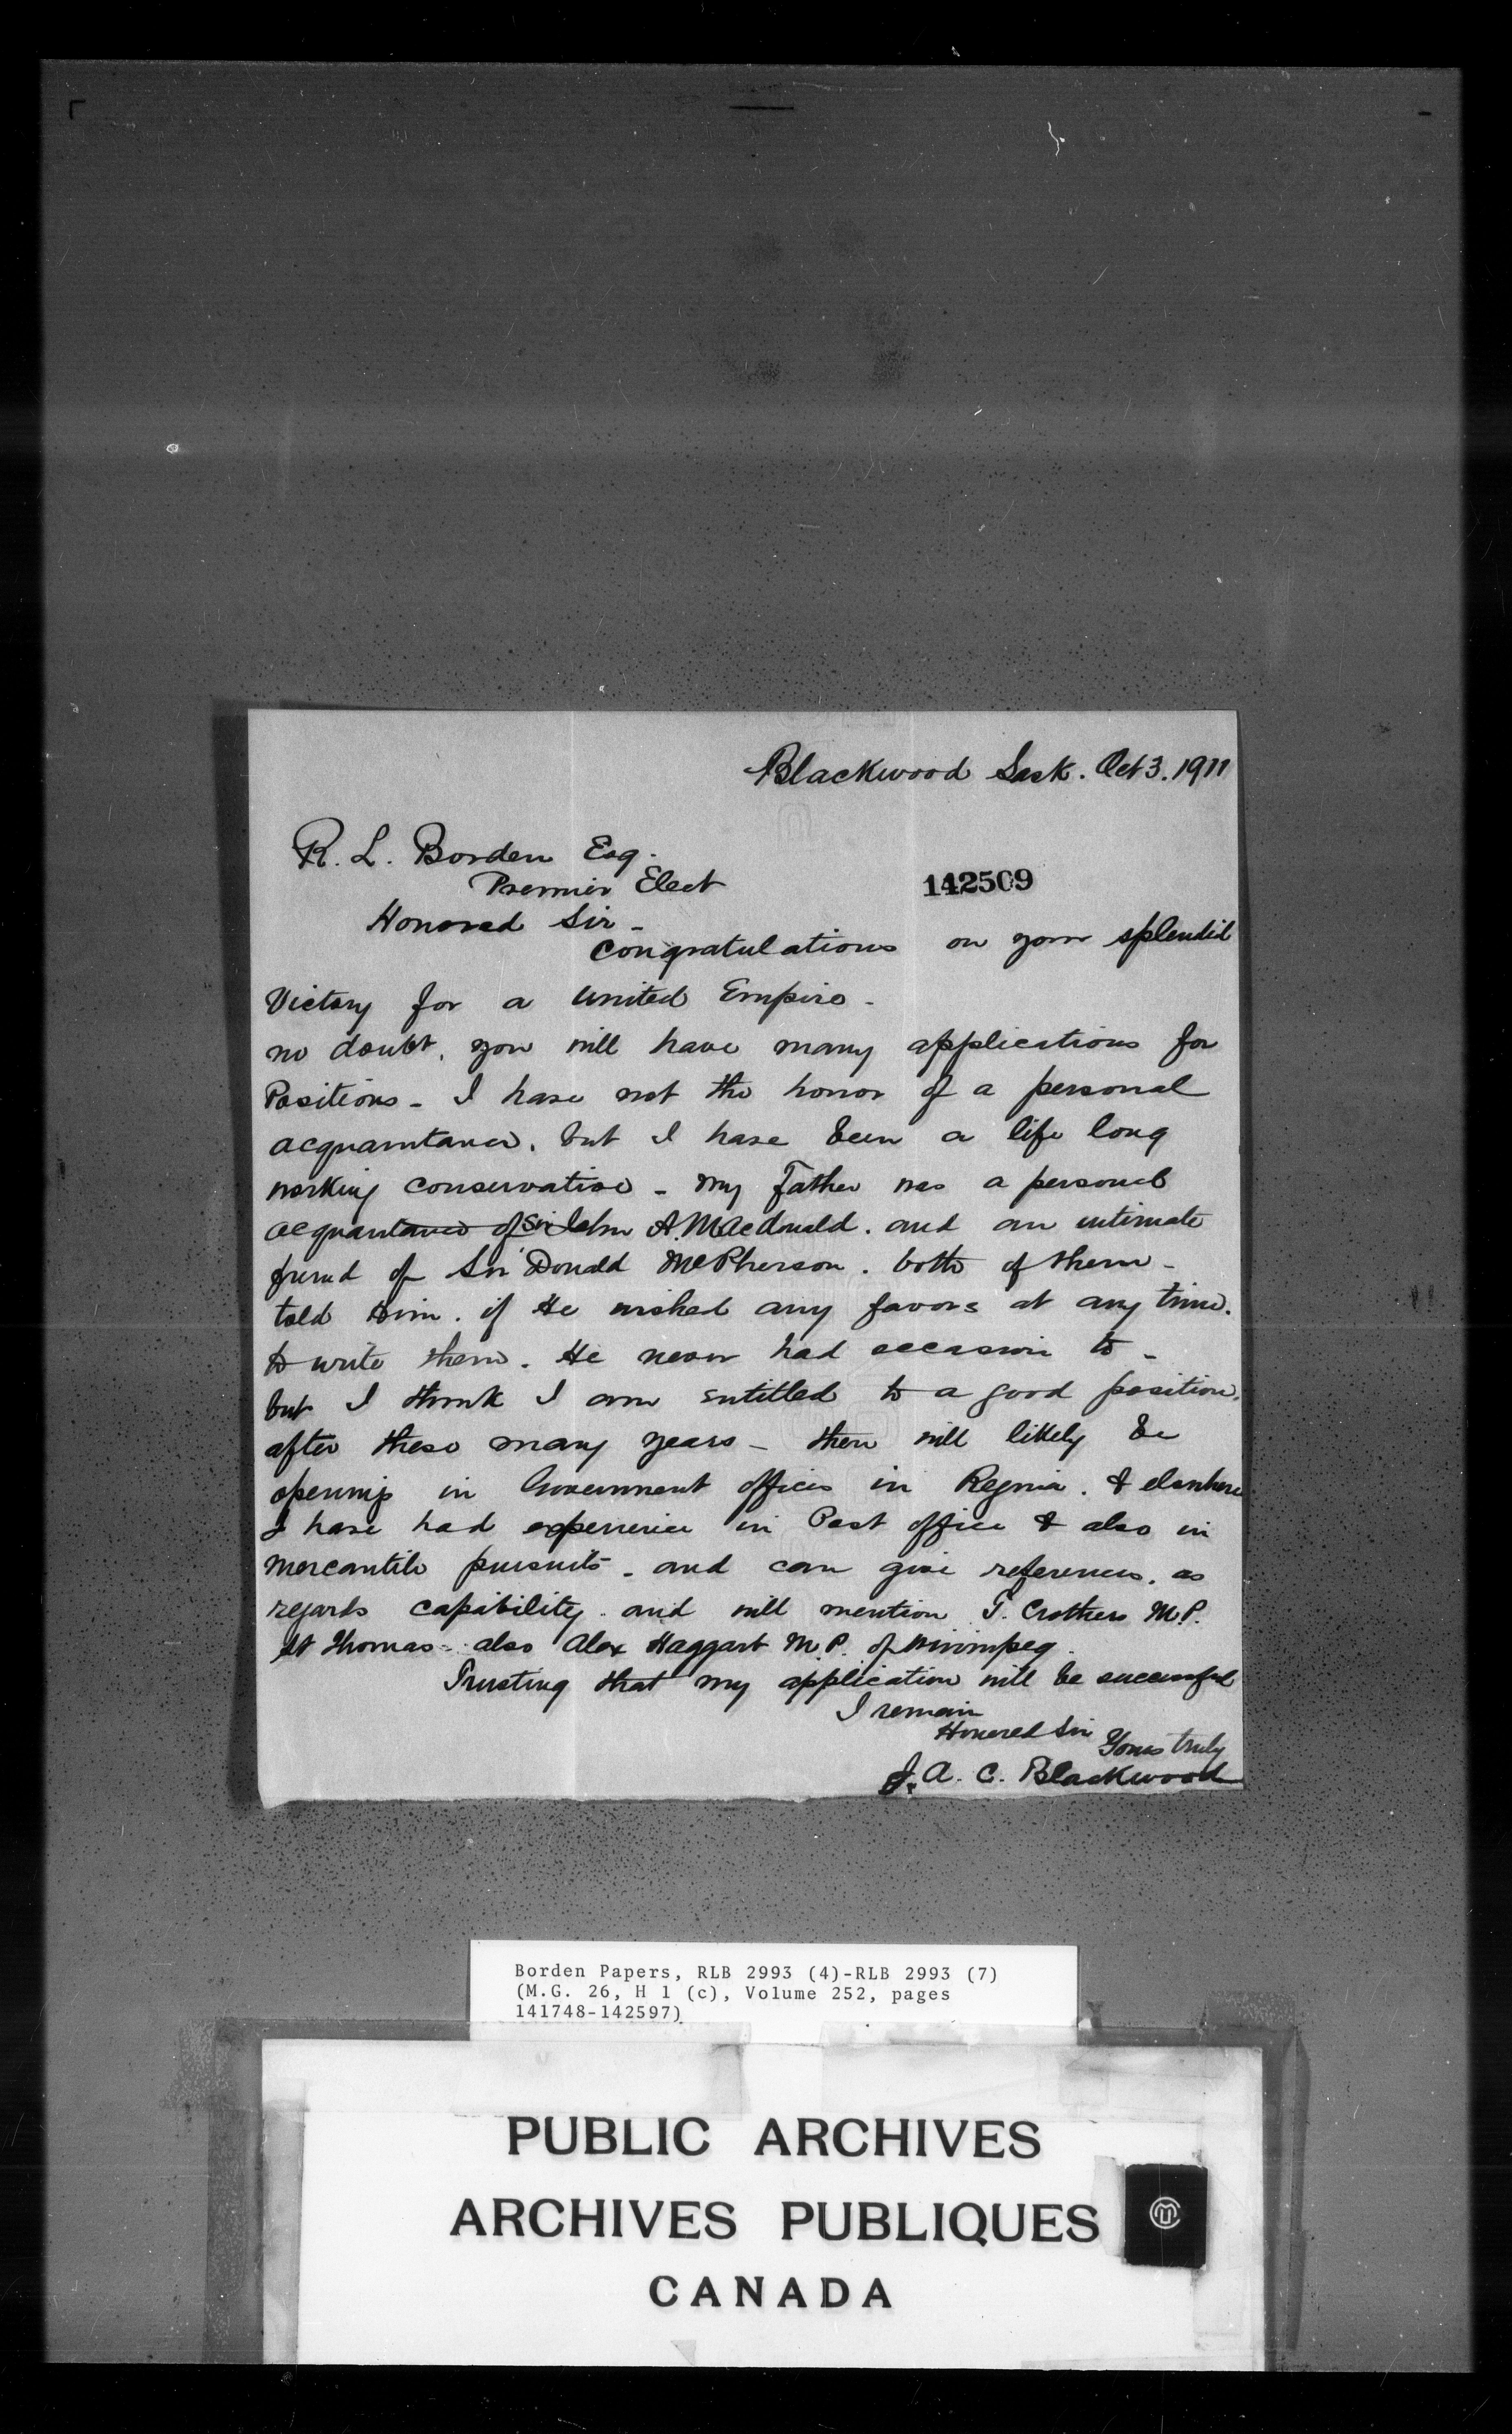 Blackwood Sask. Oct 3. 1911
R. L. Borden Esq.
Premier Elect
142509
Honored Sir -
Congratulations on your splendid
Victory for a United Empire -
no doubt, you will have many applications for
Positions - I have not the honor of a personal
acquaintance, but I have been a life long
working conservative - My Father was a personal
acquantance of Sir John A. MAcdonald. and an intimate
friend of Sir Donald McPherson. both of them -
told Him. if He wished any favors at any time.
to write them. He never had occasion to -
but I think I am entitled to a good position.
after these many years - there will likely be
openings in Government offices in Regina. & elsewhere
I have had experience in Post office & also in
Mercantile pursuits - and can give references. as
regards capability. and will mention T. Crothers M.P.
St Thomas - also Alex Haggart M.P. of Winnipeg.
Trusting that my application will be successful
I remain
Honored Sir
Yours truly
J. A. C. Blackwood
Borden Papers, RLB 2993 (4)-RLB 2993 (7)
(M.G. 26, H 1 (c), Volume 252, pages
141748-142597)
PUBLIC ARCHIVES
ARCHIVES PUBLIQUES
CANADA